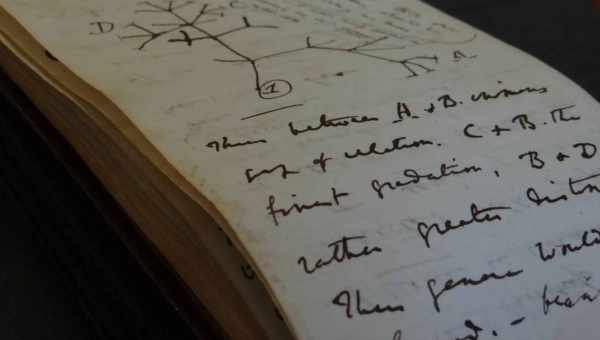 C
D
A
1
Thus between A & B. immens
gap of relation. C & B. The
finest gradation, B & D
rather greater distinc
Thus genera would
formed. — bear